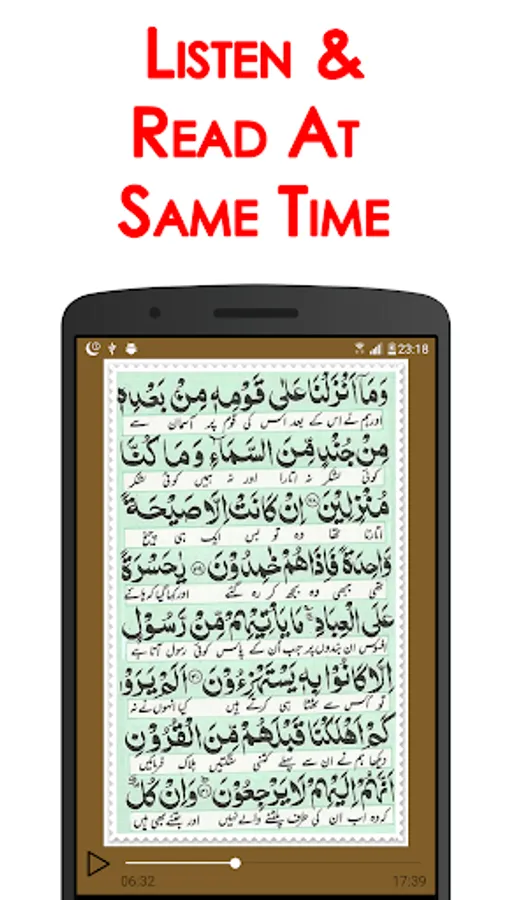 LISTEN &
READ AT
SAME TIME
23:18
وَمَآ اَنْزَلْنَا عَلٰى قَوْمِهٖ مِنْۢ بَعْدِهٖ
اور ہم نے اس کے بعد اس کی قوم پر آسمان سے
مِنْ جُنْدٍ مِّنَ السَّمَآءِ وَمَا كُنَّا
کوئی لشکر نہ اتارا اور نہ ہمیں کوئی لشکر
مُنْزِلِيْنَ ۝۲۸ اِنْ كَانَتْ اِلَّا صَيْحَةً
اتارنا تھا وہ تو بس ایک ہی چیخ
وَّاحِدَةً فَاِذَا هُمْ خٰمِدُوْنَ ۝۲۹ يٰحَسْرَةً
تھی جبھی وہ بجھ کر رہ گئے اور کہا گیا کہ ہائے
عَلَى الْعِبَادِ ۚ مَا يَاْتِيْهِمْ مِّنْ رَّسُوْلٍ
افسوس ان بندوں پر جب ان کے پاس کوئی رسول آتا ہے
اِلَّا كَانُوْا بِهٖ يَسْتَهْزِءُوْنَ ۝۳۰ اَلَمْ يَرَوْا
تو اس سے ٹھٹھا ہی کرتے ہیں کیا انہوں نے نہ
كَمْ اَهْلَكْنَا قَبْلَهُمْ مِّنَ الْقُرُوْنِ
دیکھا ہم نے ان سے پہلے کتنی سنگتیں ہلاک فرمائیں
اَنَّهُمْ اِلَيْهِمْ لَا يَرْجِعُوْنَ ۝۳۱ وَاِنْ كُلٌّ
کہ وہ اب ان کی طرف پلٹنے والے نہیں اور جتنے بھی ہیں
06:32 17:39